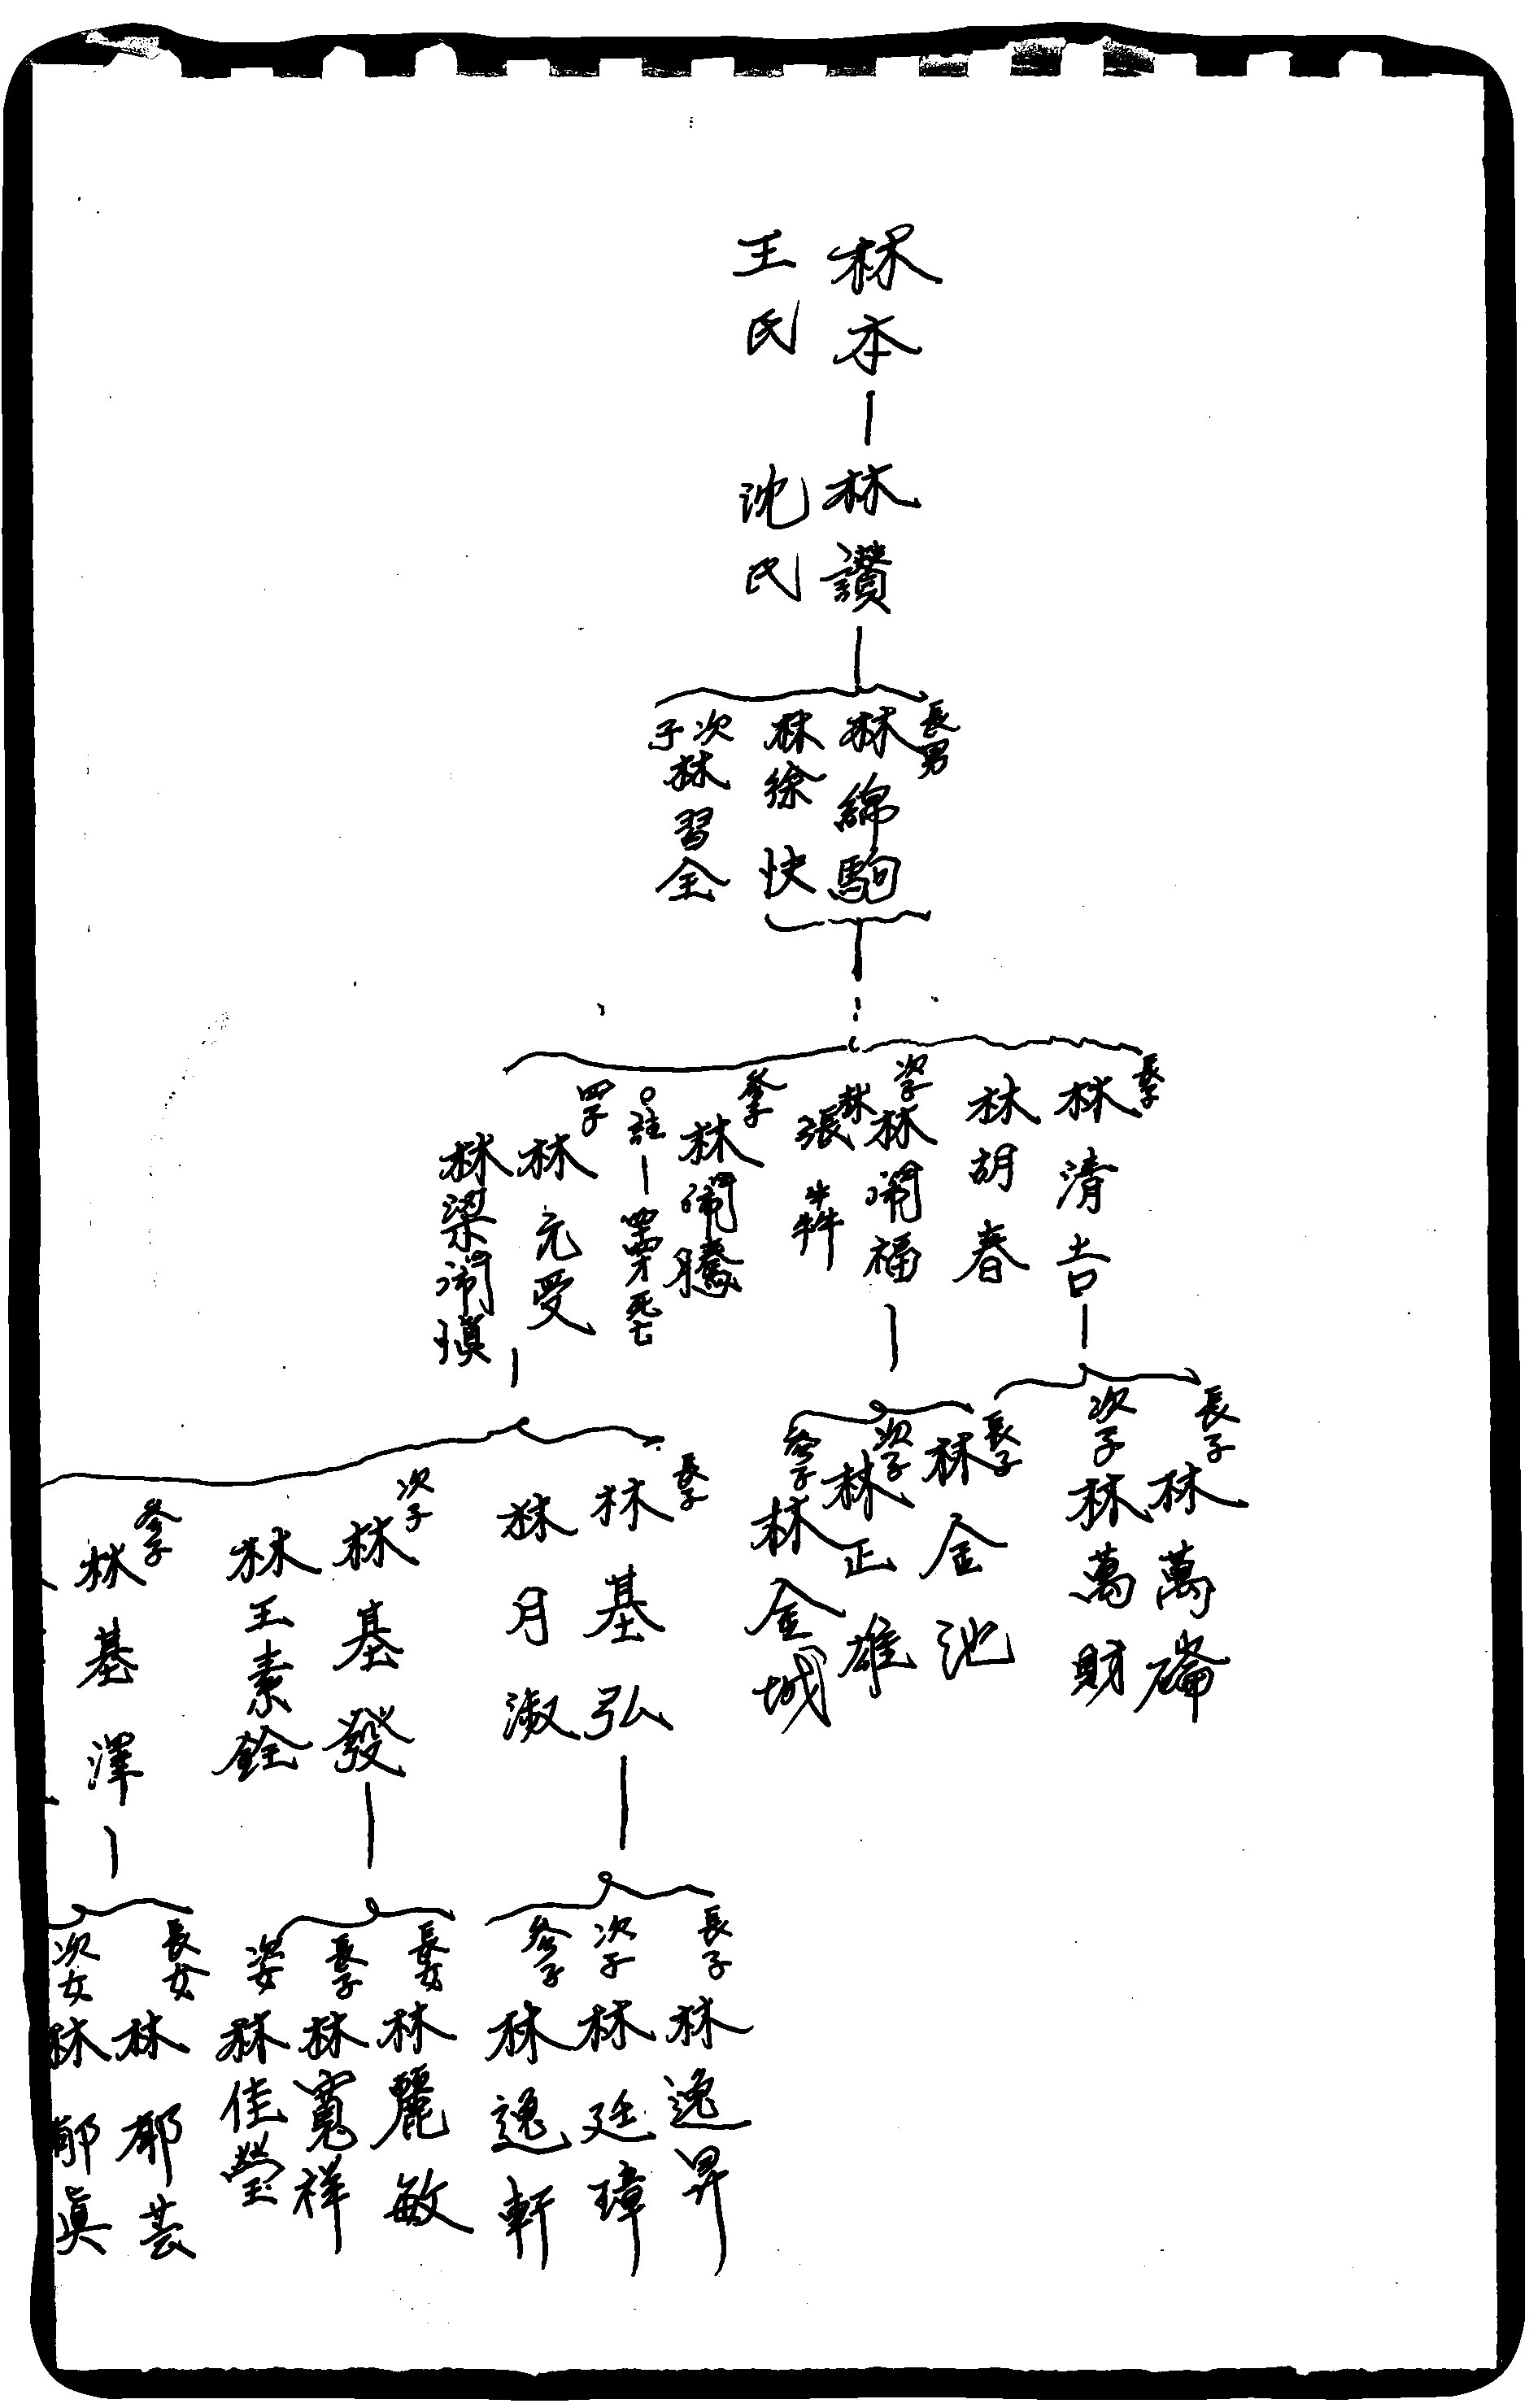 林本
王氏
林讚
沈氏
長男
林綿駒
林徐快
次子
林習全
長子
林清吉
林胡春
次子
林鬧福
林張犇
參子
林鬧騰
註
四子
林元受
林梁鬧瑱
長子
林萬崙
次子
林萬財
長子
林金池
次子
林正雄
參子
林金城
長子
林基弘
林月淑
次子
林基發
林王素銓
參子
林基澤
長子
林逸昇
次子
林廷璋
參子
林逸軒
長女
林麗敏
長子
林寬祥
次女
林佳瑩
長女
林郁芸
次女
林郁真